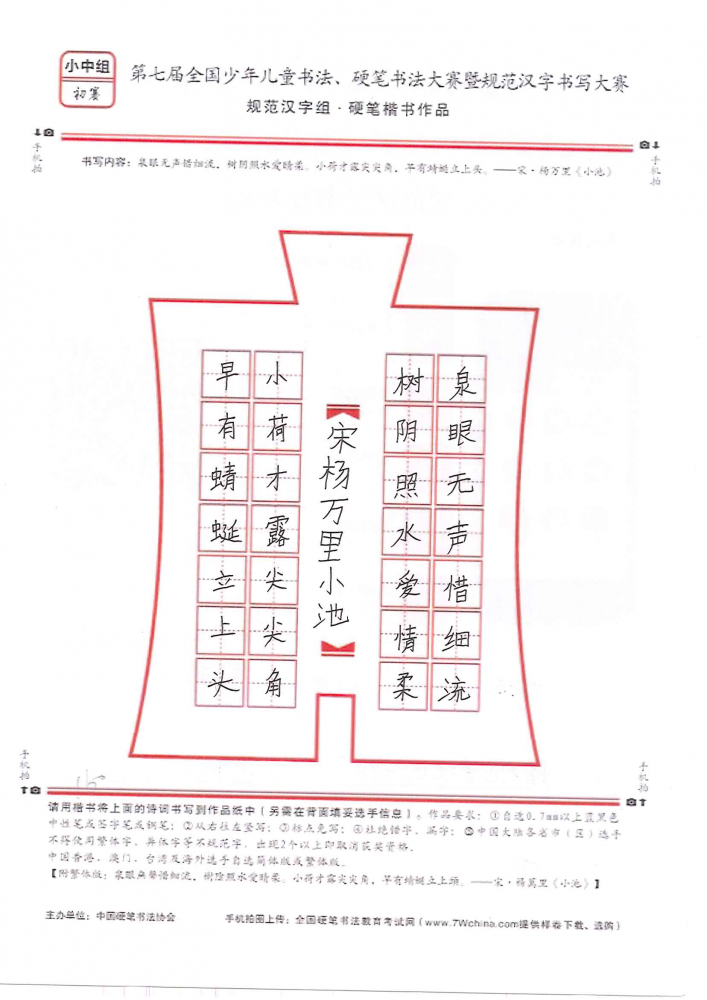 小中组
初赛
第七届全国少年儿童书法、硬笔书法大赛暨规范汉字书写大赛
规范汉字组·硬笔楷书作品
手机拍
手机拍
书写内容：泉眼无声惜细流，树阴照水爱晴柔。小荷才露尖尖角，早有蜻蜓立上头。——宋·杨万里《小池》
泉眼无声惜细流
树阴照水爱情柔
宋杨万里小池
小荷才露尖尖角
早有蜻蜓立上头
手机拍
手机拍
请用楷书将上面的诗词书写到作品纸中（另需在背面填妥选手信息）。作品要求：①自选0.7mm以上蓝黑色
中性笔或签字笔或钢笔；②从右往左竖写；③标点免写；④杜绝错字、漏字；⑤中国大陆各省市（区）选手
不得使用繁体字、异体字等不规范字，出现2个以上即取消获奖资格。
中国香港、澳门、台湾及海外选手自选简体版或繁体版。
【附繁体版：泉眼無聲惜細流，樹陰照水愛晴柔。小荷才露尖尖角，早有蜻蜓立上頭。——宋·楊萬里《小池》】
主办单位：中国硬笔书法协会
手机拍图上传：全国硬笔书法教育考试网（www.7Wchina.com提供样卷下载、选购）